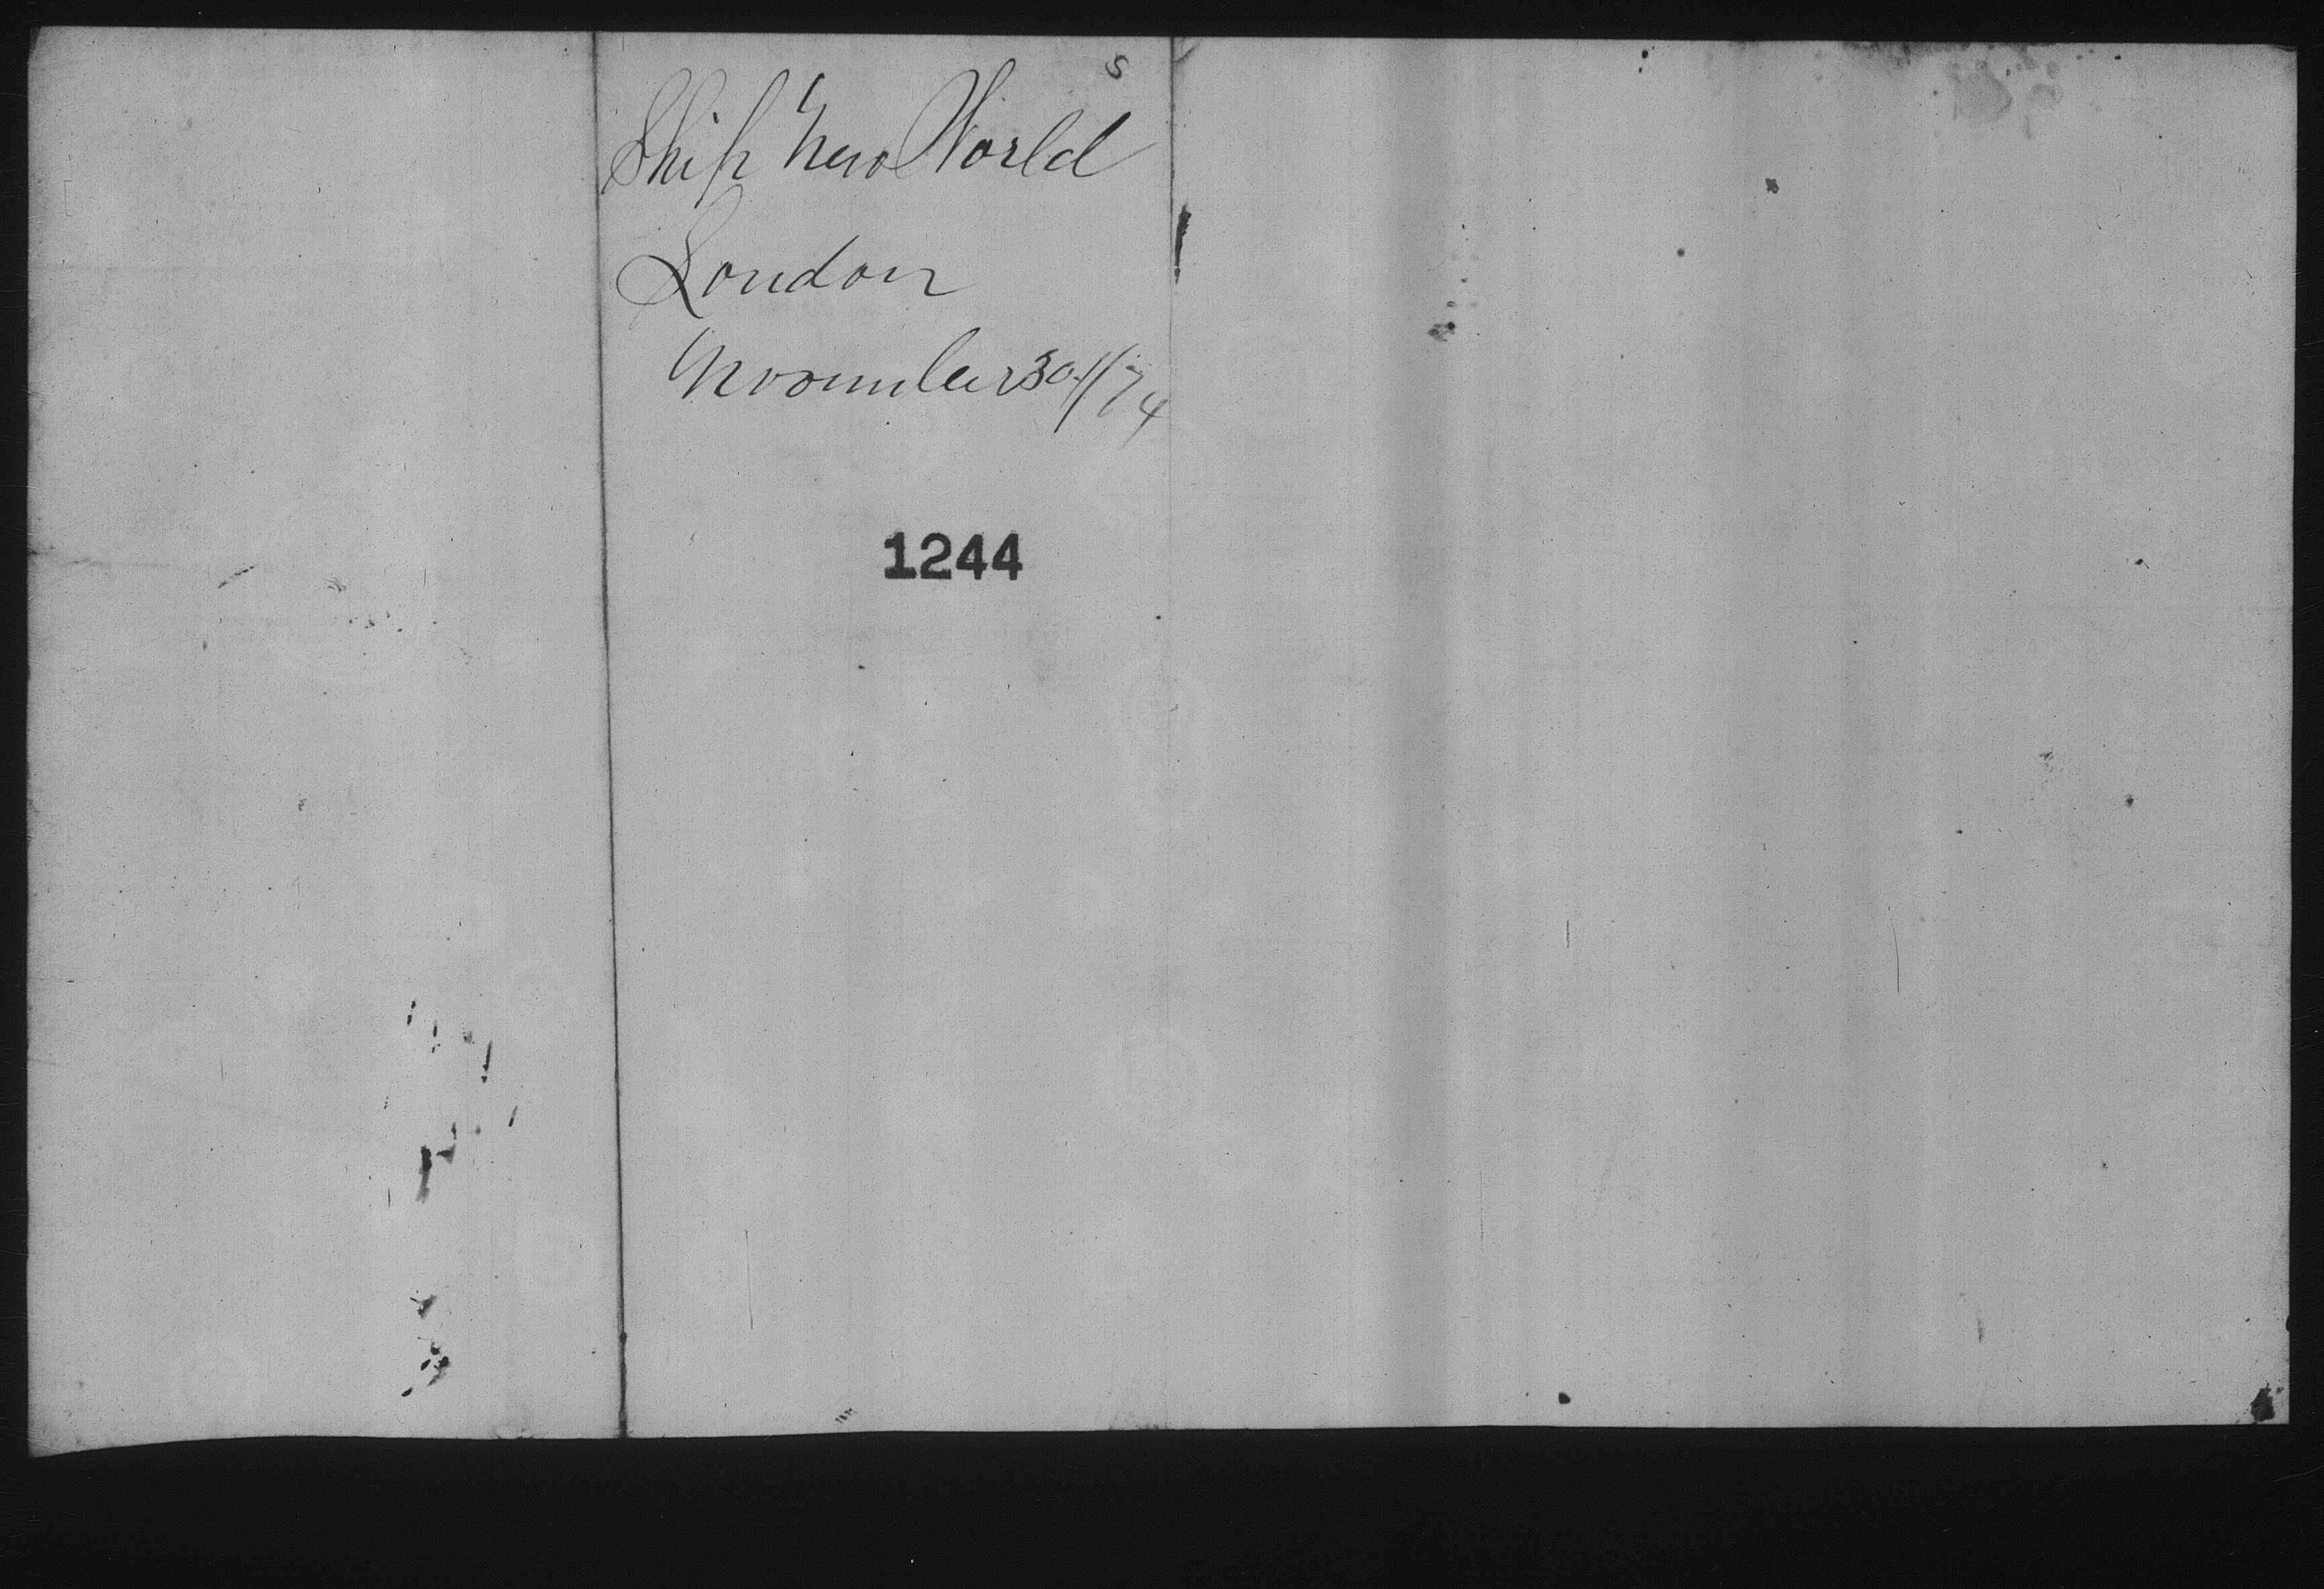 s
Ship New World
London
November 30/74
1244